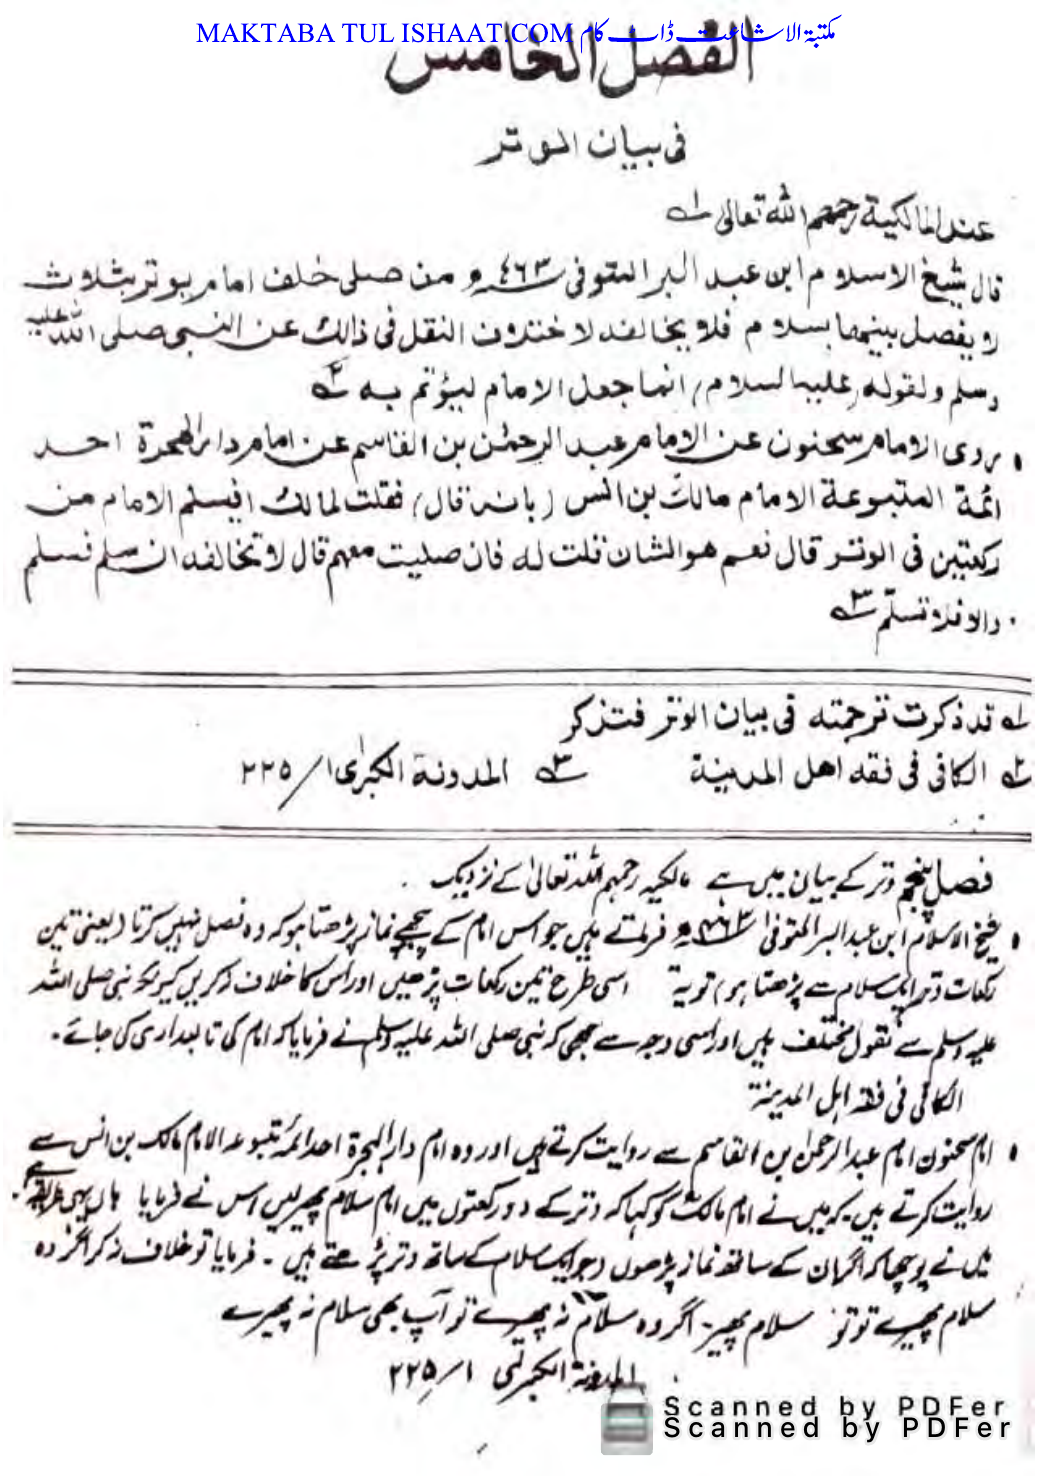 MAKTABA TUL ISHAAT.COM مکتبۃ الاشاعت ڈاٹ کام
الفصل الخامس
فی بیان الوتر
عند المالکیۃ رحمھم اللہ تعالیٰ ۱؎
قال شیخ الاسلام ابن عبد البر المتوفی ٤٦٣ھ و من صلی خلف امام یوتر بثلاث
لا یفصل بینھا بسلام فلا یخالفہ لاختلاف النقل فی ذالک عن النبی صلی اللہ علیہ
وسلم ولقولہ (علیہ السلام) انما جعل الامام لیؤتم بہ ۲؎
روی الامام سحنون عن الامام عبد الرحمٰن بن القاسم عن امام دار الھجرۃ احد
ائمۃ المتبوعۃ الامام مالک بن انس (بانہ قال) فقلت لمالک افیسلم الامام من
رکعتین فی الوتر قال نعم ھو الشان قلت لہ فان صلیت معھم قال لا تخالفہ ان سلم فسلم
والا فلا تسلّم ۳؎
۱؎ قد ذکرت ترجمتہ فی بیان الوتر فتذکر
۲؎ الکافی فی فقہ اھل المدینۃ ۳؎ المدونۃ الکبریٰ ۱/۲۲۵
فصل پنجم وتر کے بیان میں ہے مالکیہ رحمہم اللہ تعالیٰ کے نزدیک .
شیخ الاسلام ابن عبد البر المتوفیٰ ۴۶۳ھ فرماتے ہیں جو اس امام کے پیچھے نماز پڑھتا ہو کہ وہ فصل نہیں کرتا (یعنی تین
رکعات وتر ایک سلام سے پڑھتا ہو) تو یہ اسی طرح تین رکعات پڑھیں اور اس کا خلاف نہ کریں کیونکہ نبی صلی اللہ
علیہ وسلم سے نقول مختلف ہیں اور اسی وجہ سے بھی کہ نبی صلی اللہ علیہ وسلم نے فرمایا کہ امام کی تابعداری کی جائے۔
الکافی فی فقہ اہل المدینۃ
امام سحنون امام عبد الرحمٰن بن القاسم سے روایت کرتے ہیں اور وہ امام دار الہجرۃ احد ائمۃ متبوعہ الامام مالک بن انس سے
روایت کرتے ہیں۔ کہ میں نے امام مالکؒ کو کہا کہ وتر کے دو رکعتوں میں امام سلام پھیر لیں اس نے فرمایا ہاں یہی طریقہ ہے۔
میں نے پوچھا کہ اگر ان کے ساتھ نماز پڑھوں (جو ایک سلام کے ساتھ وتر پڑھتے ہیں ۔ فرمایا تو خلاف نہ کر اگر وہ
سلام پھیرے تو تو سلام پھیر۔ اگر وہ سلام نہ پھیرے تو آپ بھی سلام نہ پھیرے
المدونۃ الکبریٰ ۱/۲۲۵
Scanned by PDFer
Scanned by PDFer